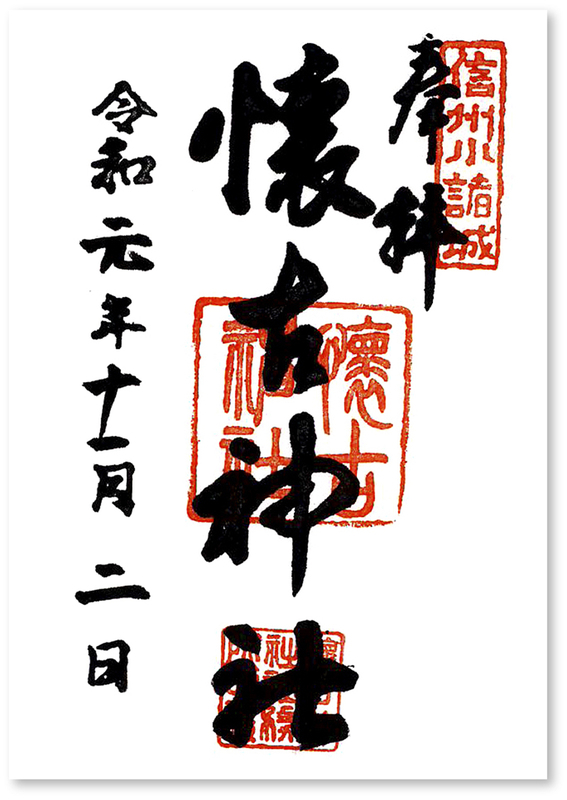 信州小諸城
奉拝
懐古神社
懐古神社
令和元年十一月二日